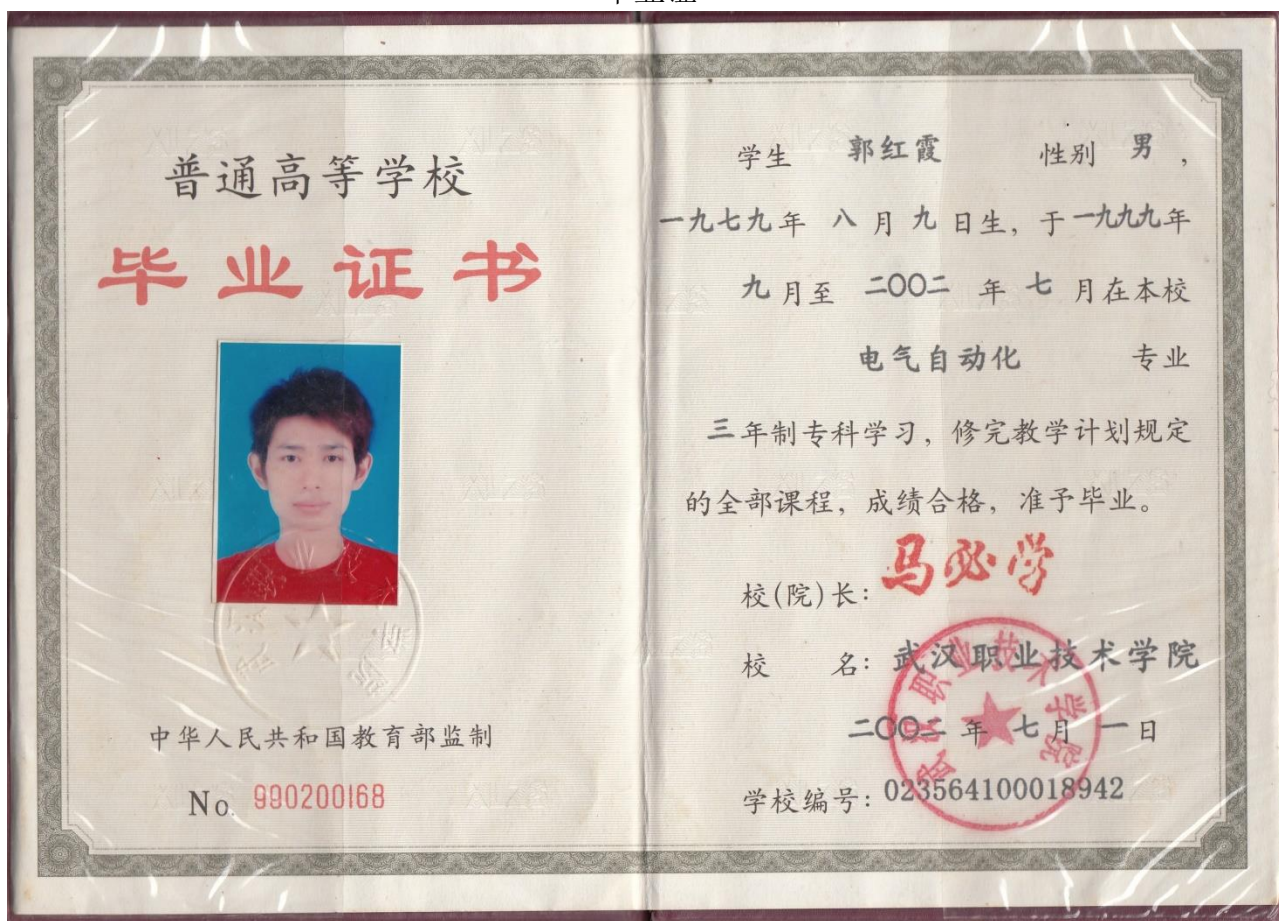 普通高等学校
毕业证书
中华人民共和国教育部监制
No. 990200168
学生 郭红霞 性别 男，
一九七九年 八月九日生，于一九九九年
九月至 二〇〇二 年 七 月在本校
电气自动化 专业
三年制专科学习，修完教学计划规定
的全部课程，成绩合格，准予毕业。
校(院)长：马必学
校 名：武汉职业技术学院
二〇〇二 年 七 月 一 日
学校编号：023564100018942
武汉职业技术学院